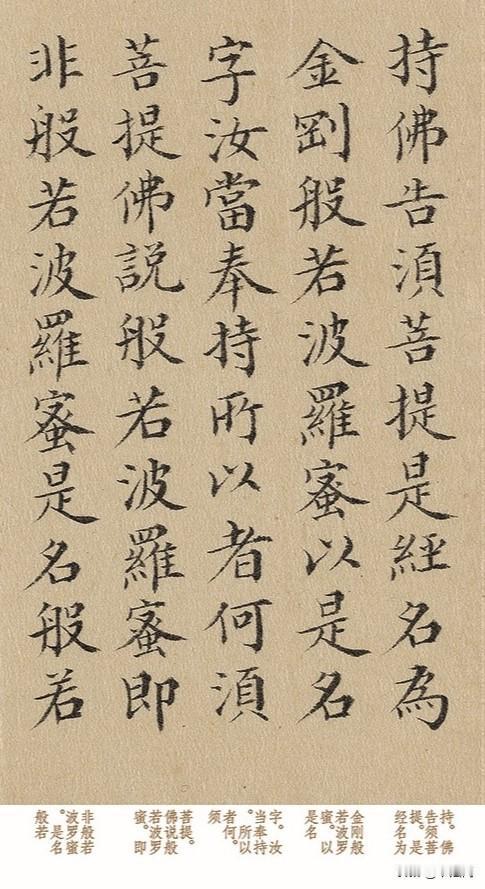 持佛告湏菩提是經名為
金剛般若波羅蜜以是名
字汝當奉持所以者何湏
菩提佛説般若波羅蜜即
非般若波羅蜜是名般若
持。佛
告须菩
提。是
经名为
金刚般
若波罗
蜜。以
是名
字。汝
当奉持
。所以
者何。
须
菩提。
佛说般
若波罗
蜜。即
非般若
波罗蜜
。是名
般若